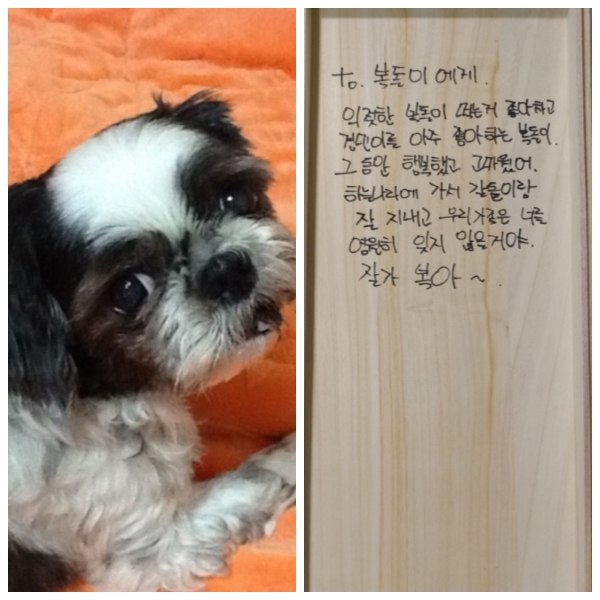 to. 복돌이 에게.
의젓한 복돌이 떠는거 좋다하고
정민이를 아주 좋아하는 복돌이.
그 동안 행복했고 고마웠어.
하늘나라에 가서 갑돌이랑
잘 지내고 우리가족은 너를
영원히 잊지 않을거야.
잘가 복아~.